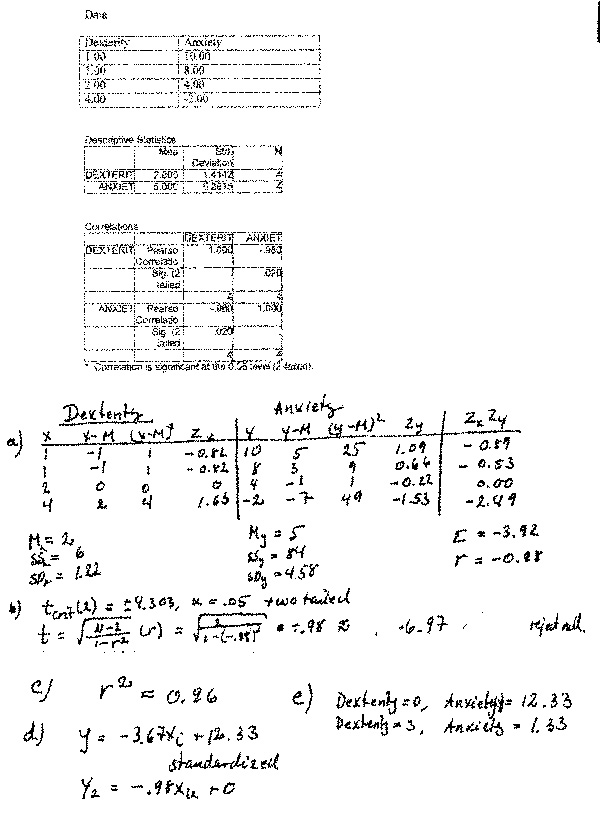 Data
Dexterity Anxiety
1.00 10.00
1.00 8.00
2.00 4.00
4.00 -2.00
Descriptive Statistics
Mea Std. Deviation N
DEXTERIT 2.000 1.4142 4
ANXIET 5.000 4
Correlations
DEXTERIT ANXIET
DEXTERIT Pearso Correlatio 1.000 -.980
Sig. (2 tailed .020
4 4
ANXIET Pearso Correlatio -.980 1.000
Sig. (2 tailed .020
4 4
* Correlation is significant at the 0.05 level (2-tailed).
Dexterity Anxiety
a) X X-M (X-M)² Zx Y Y-M (Y-M)² Zy ZxZy
1 -1 1 -0.82 10 5 25 1.09 -0.89
1 -1 1 -0.82 8 3 9 0.66 -0.53
2 0 0 0 4 -1 1 -0.22 0.00
4 2 4 1.63 -2 -7 49 -1.53 -2.49
M = 2 My = 5 Σ = -3.92
SSx = 6 SSy = 84 r = -0.98
SDx = 1.22 SDy = 4.58
b) tcrit(2) = ±4.303, α = .05 two tailed
t = √(N-2/1-r²) (r) = √(2/1-(-.98)²) * -.98 = -6.97 reject null.
c) r² = 0.96 e) Dexterity = 0, Anxiety = 12.33
Dexterity = 3, Anxiety = 1.33
d) Y = -3.67Xi + 12.33
standardized
Yz = -.98Xiz + 0